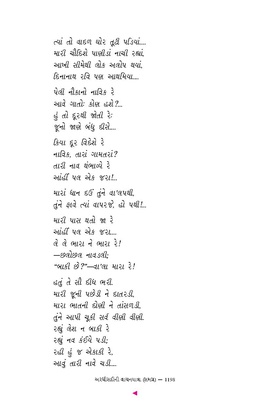 ત્યાં તો વાદળ ઘોર તૂટી પડિયાં...
મારી ચૌદિશે પાણીડાં નાચી રહ્યાં,
આખી સીમેથી લોક અલોપ થયાં,
દિનાનાથ રવિ પણ આથમિયા...
પેલી નૌકાનો નાવિક રે
આવે ગાતોઃ કોણ હશે?...
હું તો દૂરથી જોતી રેઃ
જૂનો જાણે બંધુ દીસે...
કિયા દૂર વિદેશે રે
નાવિક, તારાં ગામતરાં?
તારી નાવ થંભાવ્યે રે
આંહીં પલ એક જરા!..
મારાં ધાન દઉં તુંને વા'લપથી,
તુંને ફાવે ત્યાં વાપરજે, હો પથી!..
મારી પાસ થતો જા રે
આંહીં પલ એક જરા...
લે લે ભારા ને ભારા રે!
—છલોછલ નાવડલી;
"બાકી છે?"—વા'લા મારા રે!
હતું તે સૌ દીધ ભરી.
મારી જૂની પછેડી ને દાતરડી,
મારા ભાતની દોણી ને તાંસળડી,
તુંને આપી ચૂકી સર્વ વીણી વીણી.
રહ્યું લેશ ન બાકી રે
રહ્યું નવ કંઈયે પડી;
રહી હું જ એકાકી રે,
આવું તારી નાવે ચડી...